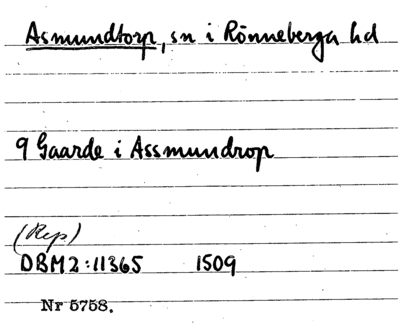 Asmundtorp, sn i Rönneberga hd
9 Gaarde i Assmundrop
(Rep)
DBM2:11365 1509
Nr 5758.